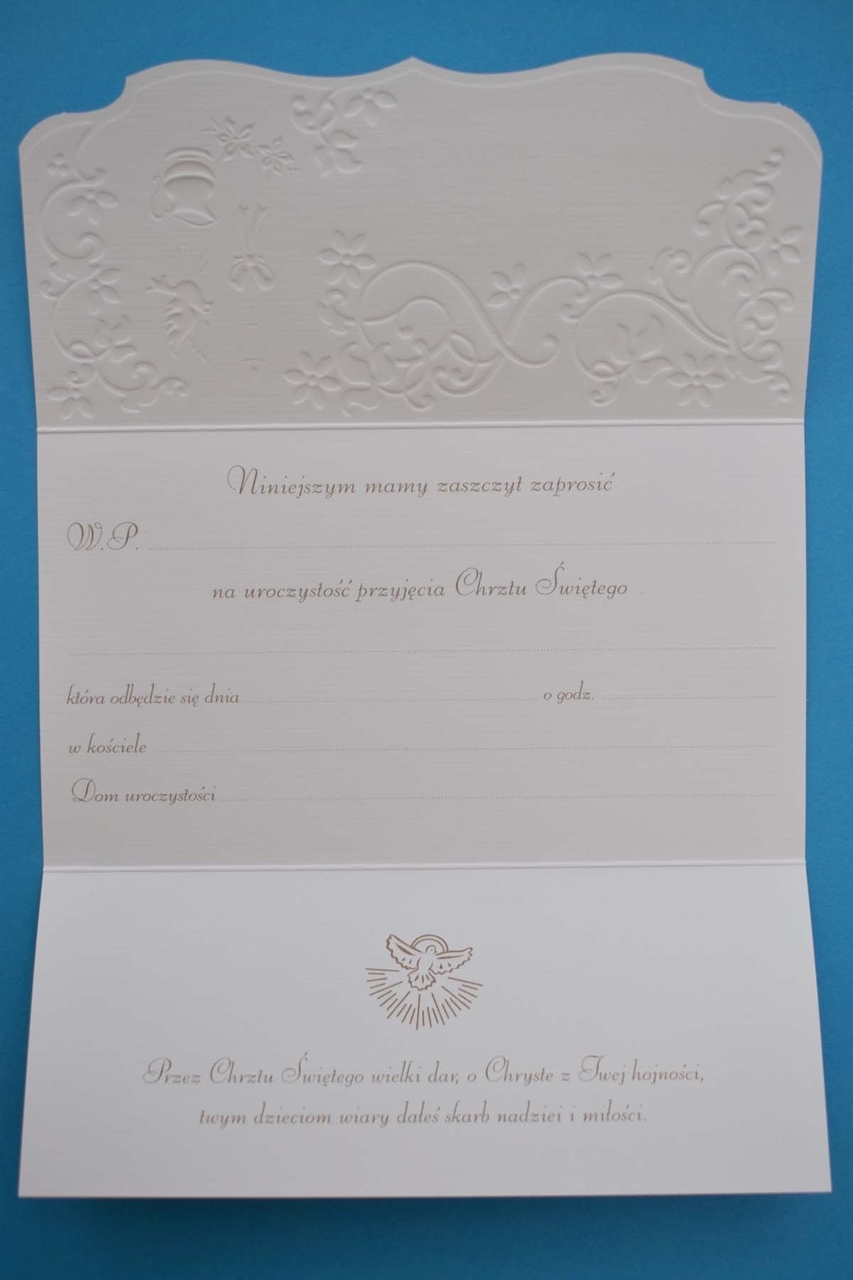 Niniejszym mamy zaszczyt zaprosić
W.P.
na uroczystość przyjęcia Chrztu Świętego
która odbędzie się dnia o godz.
w kościele
Dom uroczystości
Przez Chrztu Świętego wielki dar, o Chryste z Twej hojności,
twym dzieciom wiary dałeś skarb nadziei i miłości.